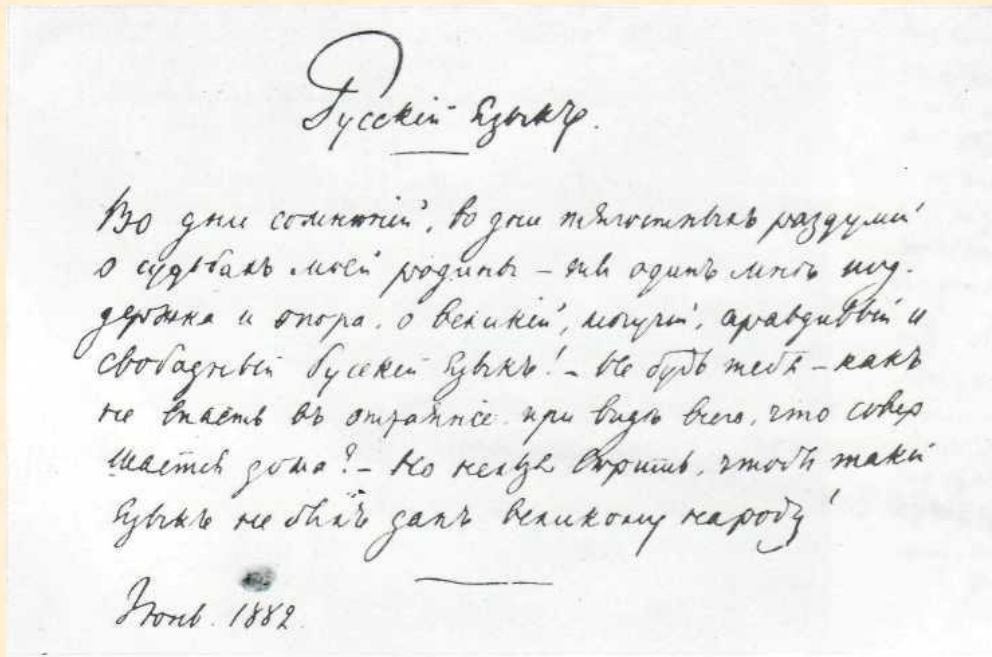 Русскій Языкъ.
Во дни сомнѣній, во дни тягостныхъ раздумій
о судьбахъ моей родины – ты одинъ мнѣ под-
держка и опора, о великій, могучій, правдивый и
свободный Русскій Языкъ! – Не будь тебя – какъ
не впасть въ отчаяніе при видѣ всего, что совер
шается дома? – Но нельзя вѣрить, чтобы такой
языкъ не былъ данъ великому народу!
Іюнь. 1882.